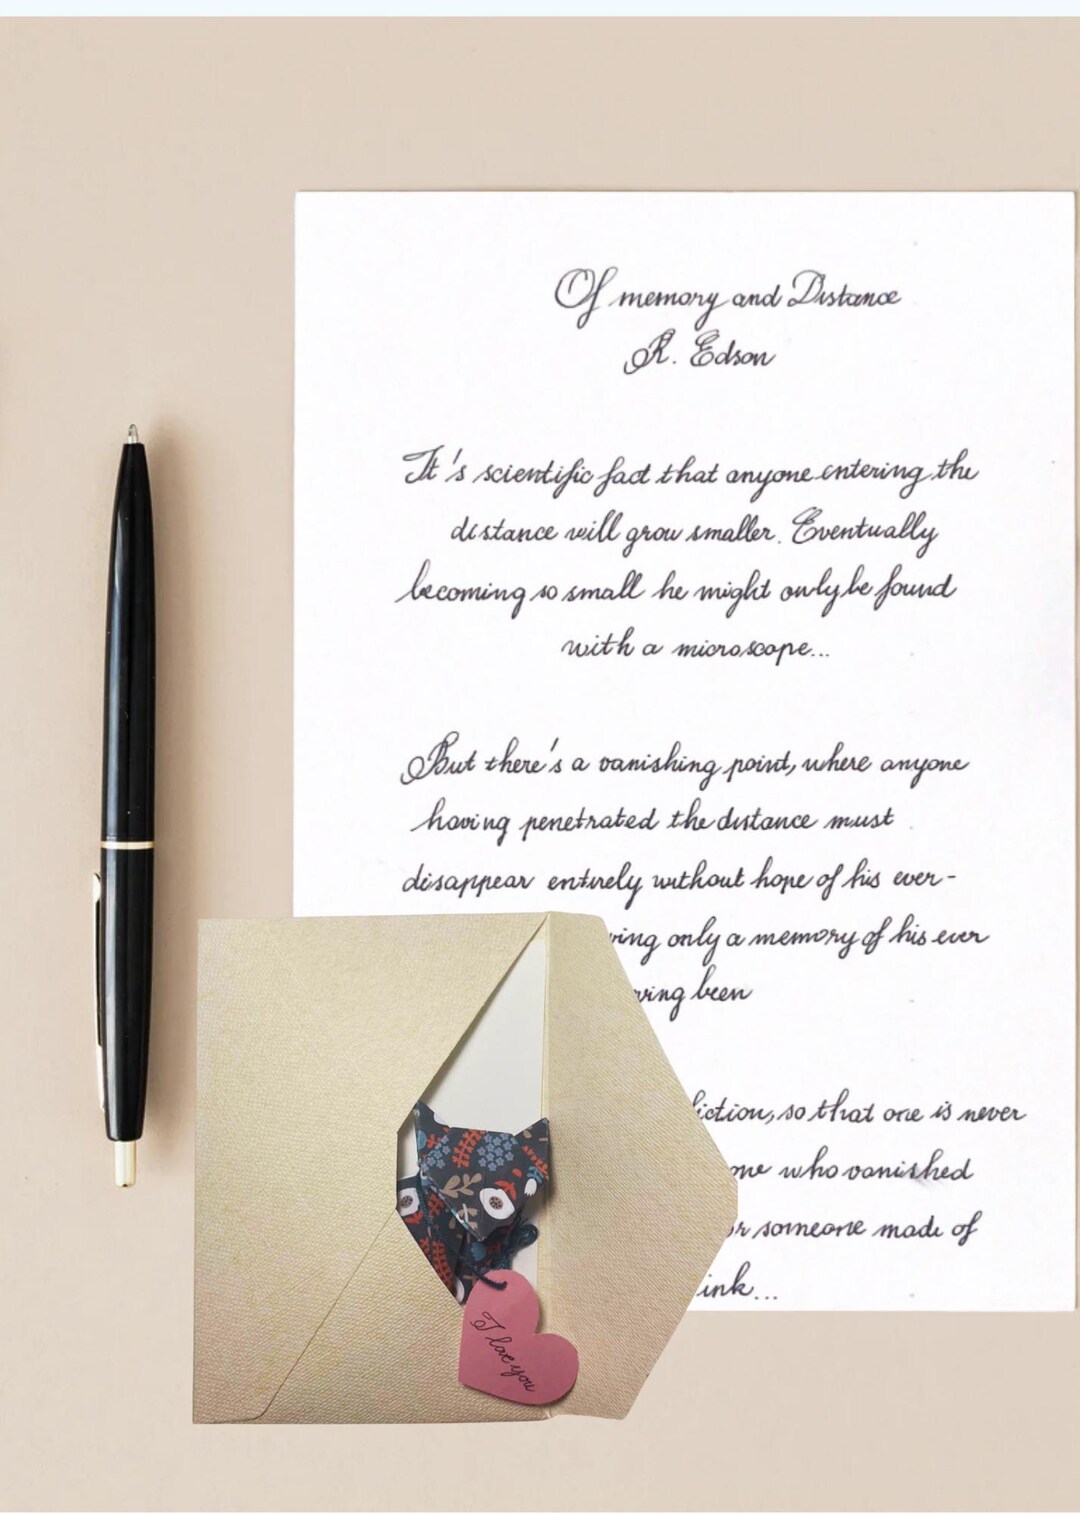 Of memory and Distance
R. Edson
It's scientific fact that anyone entering the
distance will grow smaller. Eventually
becoming so small he might only be found
with a microscope...
But there's a vanishing point, where anyone
having penetrated the distance must
disappear entirely without hope of his ever-
only a memory of his ever
been
so that one is never
who vanished
someone made of
ink...
I love you